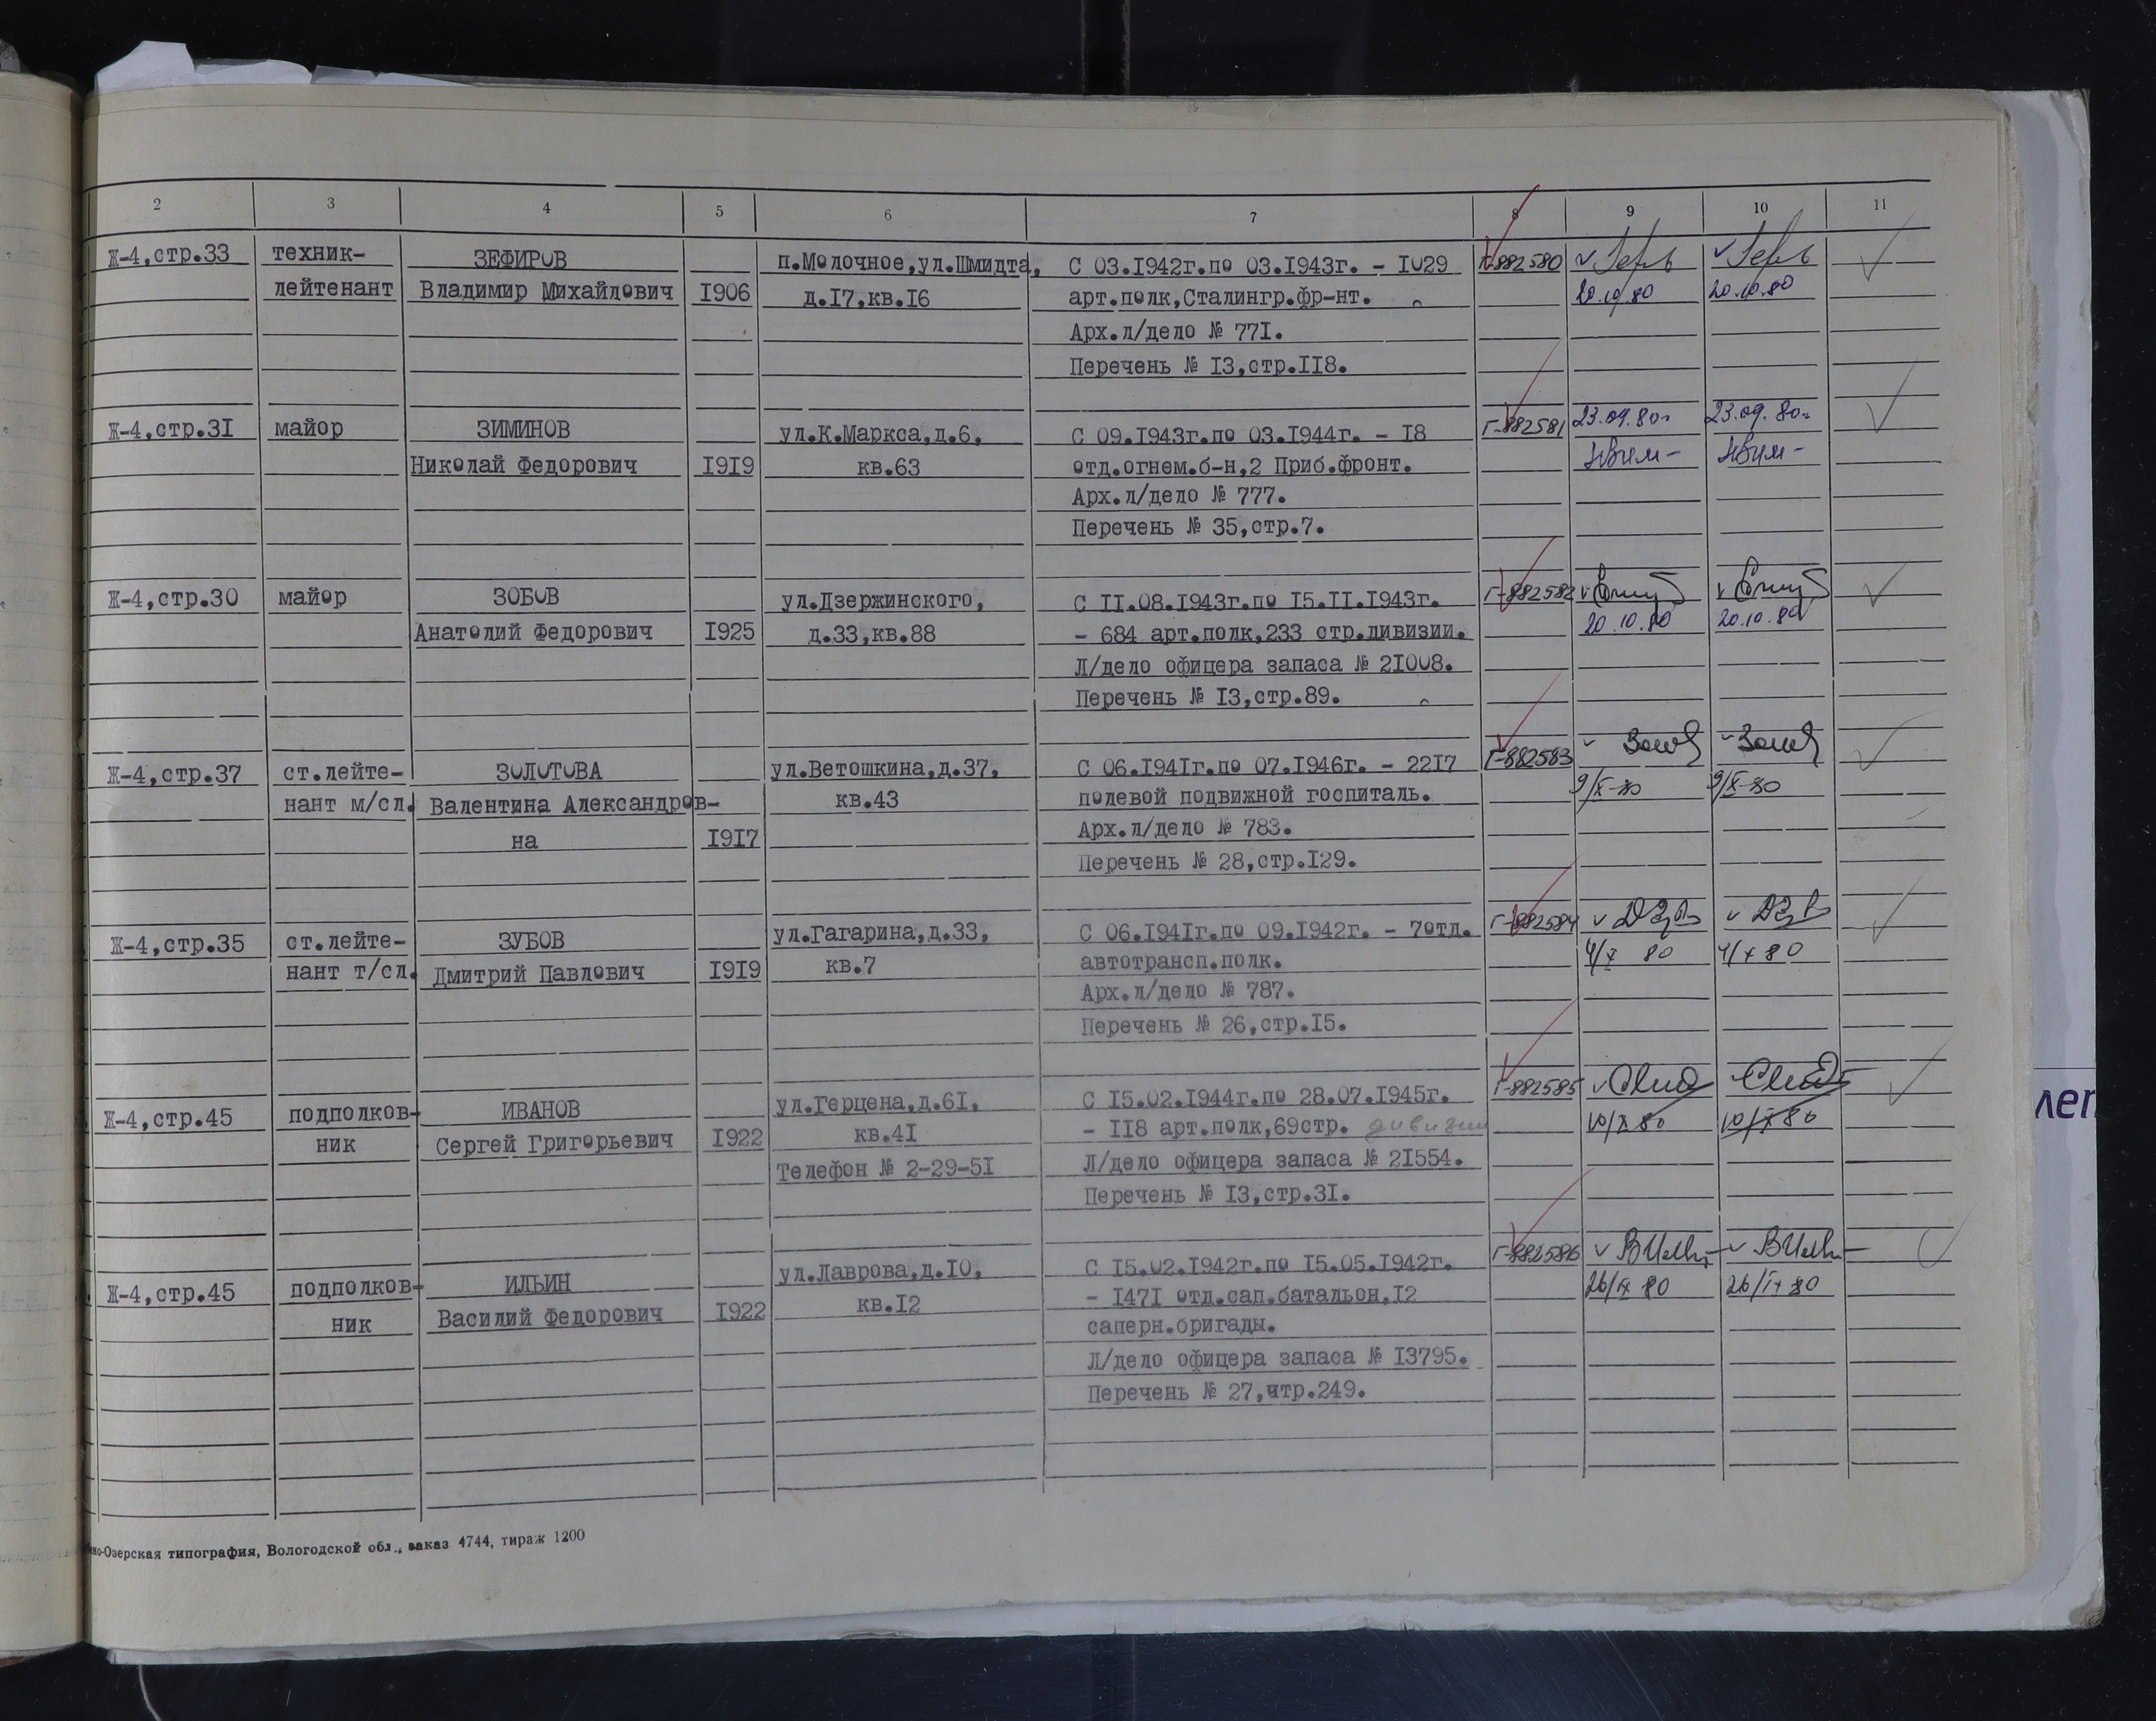 2 3 4 5 6 7 8 9 10 11
Ж-4,стр.33 техник- ЗЕФИРОВ п.Молочное,ул.Шмидта, С 03.1942г.по 03.1943г. - 1029 Г-882580
лейтенант Владимир Михайлович 1906 д.17,кв.16 арт.полк,Сталингр.фр-нт. 20.10.80 20.10.80
Арх.л/дело № 771.
Перечень № 13,стр.118.
Ж-4,стр.31 майор ЗИМИНОВ ул.К.Маркса,д.6, С 09.1943г.по 03.1944г. - 18 Г-882581 23.09.80г 23.09.80г
Николай Федорович 1919 кв.63 отд.огнем.б-н,2 Приб.фронт.
Арх.л/дело № 777.
Перечень № 35,стр.7.
Ж-4,стр.30 майор ЗОБОВ ул.Дзержинского, С 11.08.1943г.по 15.11.1943г. Г-882582
Анатолий Федорович 1925 д.33,кв.88 - 684 арт.полк,233 стр.дивизии. 20.10.80 20.10.80
Л/дело офицера запаса № 21008.
Перечень № 13,стр.89.
Ж-4,стр.37 ст.лейте- ЗОЛОТОВА ул.Ветошкина,д.37, С 06.1941г.по 07.1946г. - 2217 Г-882583
нант м/сл. Валентина Александров- кв.43 полевой подвижной госпиталь. 9/X-80 9/X-80
на 1917 Арх.л/дело № 783.
Перечень № 28,стр.129.
Ж-4,стр.35 ст.лейте- ЗУБОВ ул.Гагарина,д.33, С 06.1941г.по 09.1942г. - 7отд. Г-882584
нант т/сл. Дмитрий Павлович 1919 кв.7 автотрансп.полк. 4/X 80 4/X 80
Арх.л/дело № 787.
Перечень № 26,стр.15.
Ж-4,стр.45 подполков- ИВАНОВ ул.Герцена,д.61, С 15.02.1944г.по 28.07.1945г. Г-882585
ник Сергей Григорьевич 1922 кв.41 - 118 арт.полк,69стр. дивизии 10/X 80 10/X 80
Телефон № 2-29-51 Л/дело офицера запаса № 21554.
Перечень № 13,стр.31.
Ж-4,стр.45 подполков- ИЛЬИН ул.Лаврова,д.10, С 15.02.1942г.по 15.05.1942г. Г-882586
ник Василий Федорович 1922 кв.12 - 1471 отд.сап.батальон,12 26/IX 80 26/IX 80
саперн.бригады.
Л/дело офицера запаса № 13795.
Перечень № 27,чтр.249.
но-Озерская типография, Вологодской обл., заказ 4744, тираж 1200